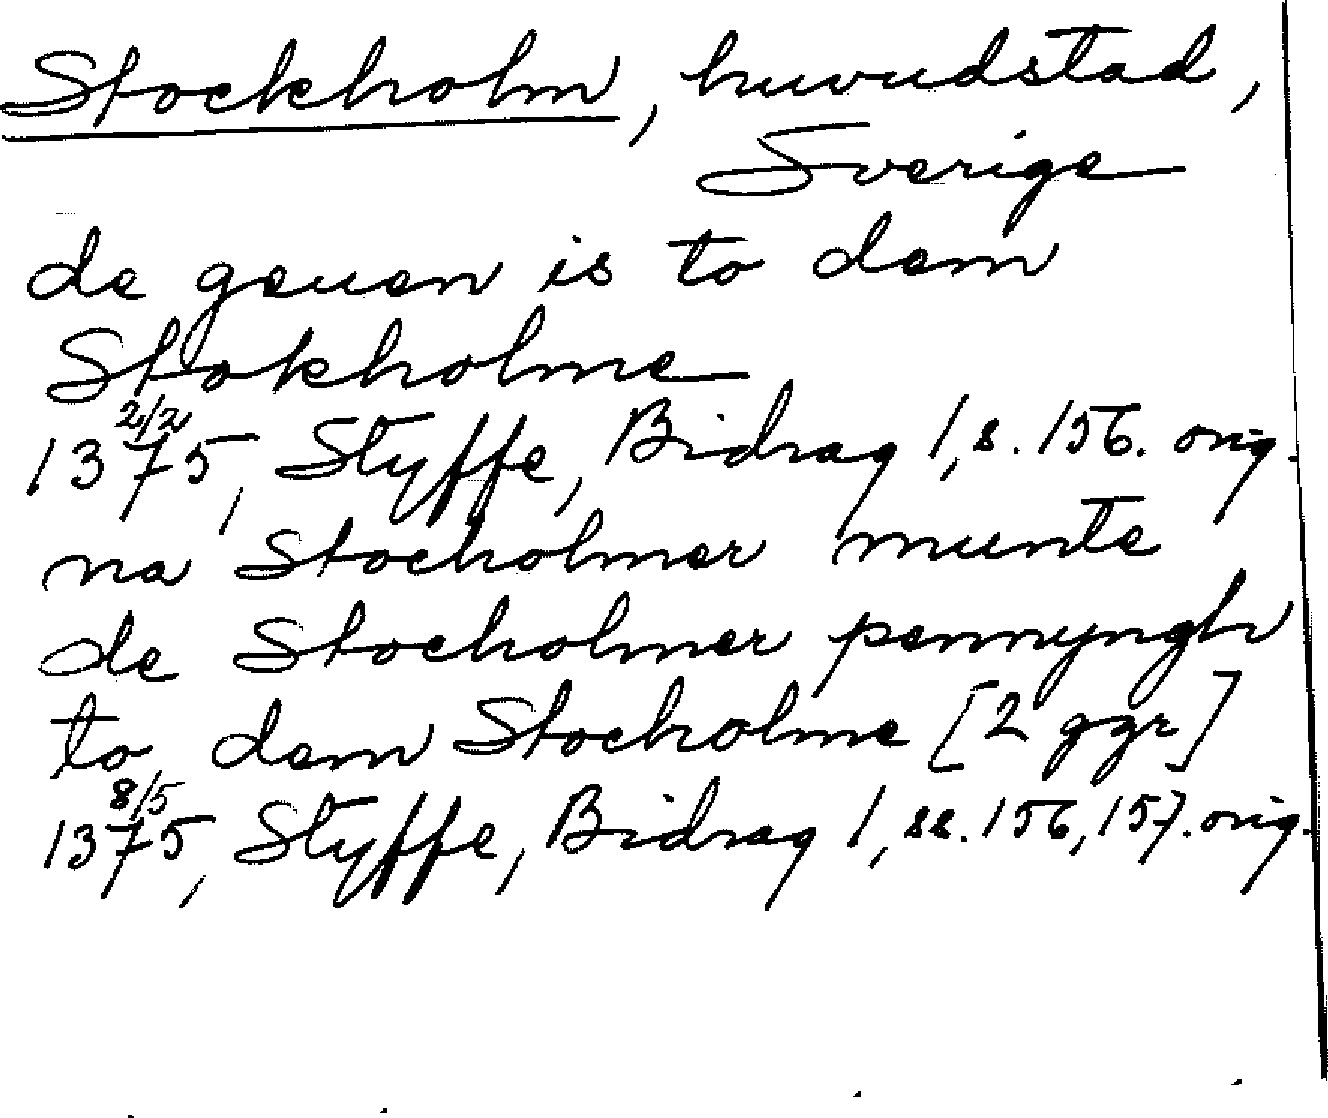 Stockholm, huvudstad,
Sverige
de geuen is to dem
Stokholme
2/2
1375, Styffe, Bidrag 1, s. 156. orig.
na Stocholmer munte
de Stocholmer pennyngh
to dem Stocholme [2 ggr]
8/5
1375, Styffe, Bidrag 1, ss. 156, 157. orig.